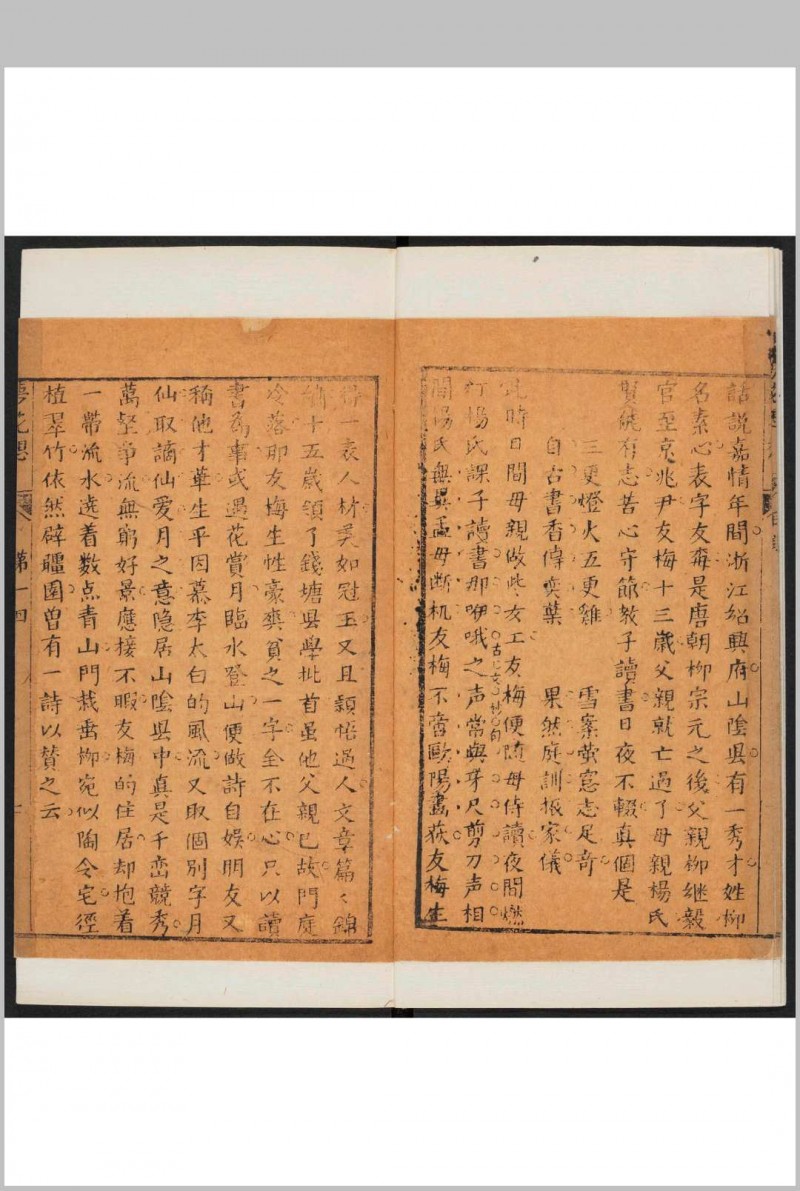 話說嘉情年間浙江紹興府山陰县有一秀才姓柳
名素心表字友梅是唐朝柳宗元之後父親柳继毅
官至亰兆尹友梅十三歲父親就亡過了母親楊氏
賢能有志苦心守節教子讀書日夜不輟真個是
三更燈火五更雞　雪案萤窓志足竒
自古書香傳奕葉　果然庭訓振家儀
此時日間母親做些女工友梅便隨母侍讀夜間燃
灯楊氏課子讀書那咿哦之声常與牙尺剪刀声相
間楊氏無異孟母断机友梅不啻歐陽畫荻友梅生
得一表人材美如冠玉又且頴悟過人文章篇〻錦
綉十五歲領了錢塘县學批首虽他父親已故門庭
冷落那友梅生性豪爽貧之一字全不在心只以讀
書為事或遇花賞月臨水登山便做詩自娛朋友又
稱他才華生平因慕李太白的風流又取個別字月
仙取謫仙愛月之意隐居山陰县中真是千巒競秀
萬壑争流無窮好景應接不暇友梅的住居却抱着
一帶流水遶着数点青山門栽畫柳宛似陶令宅徑
植翠竹依然辟疆園曾有一詩以賛之云
夢花想　第一回